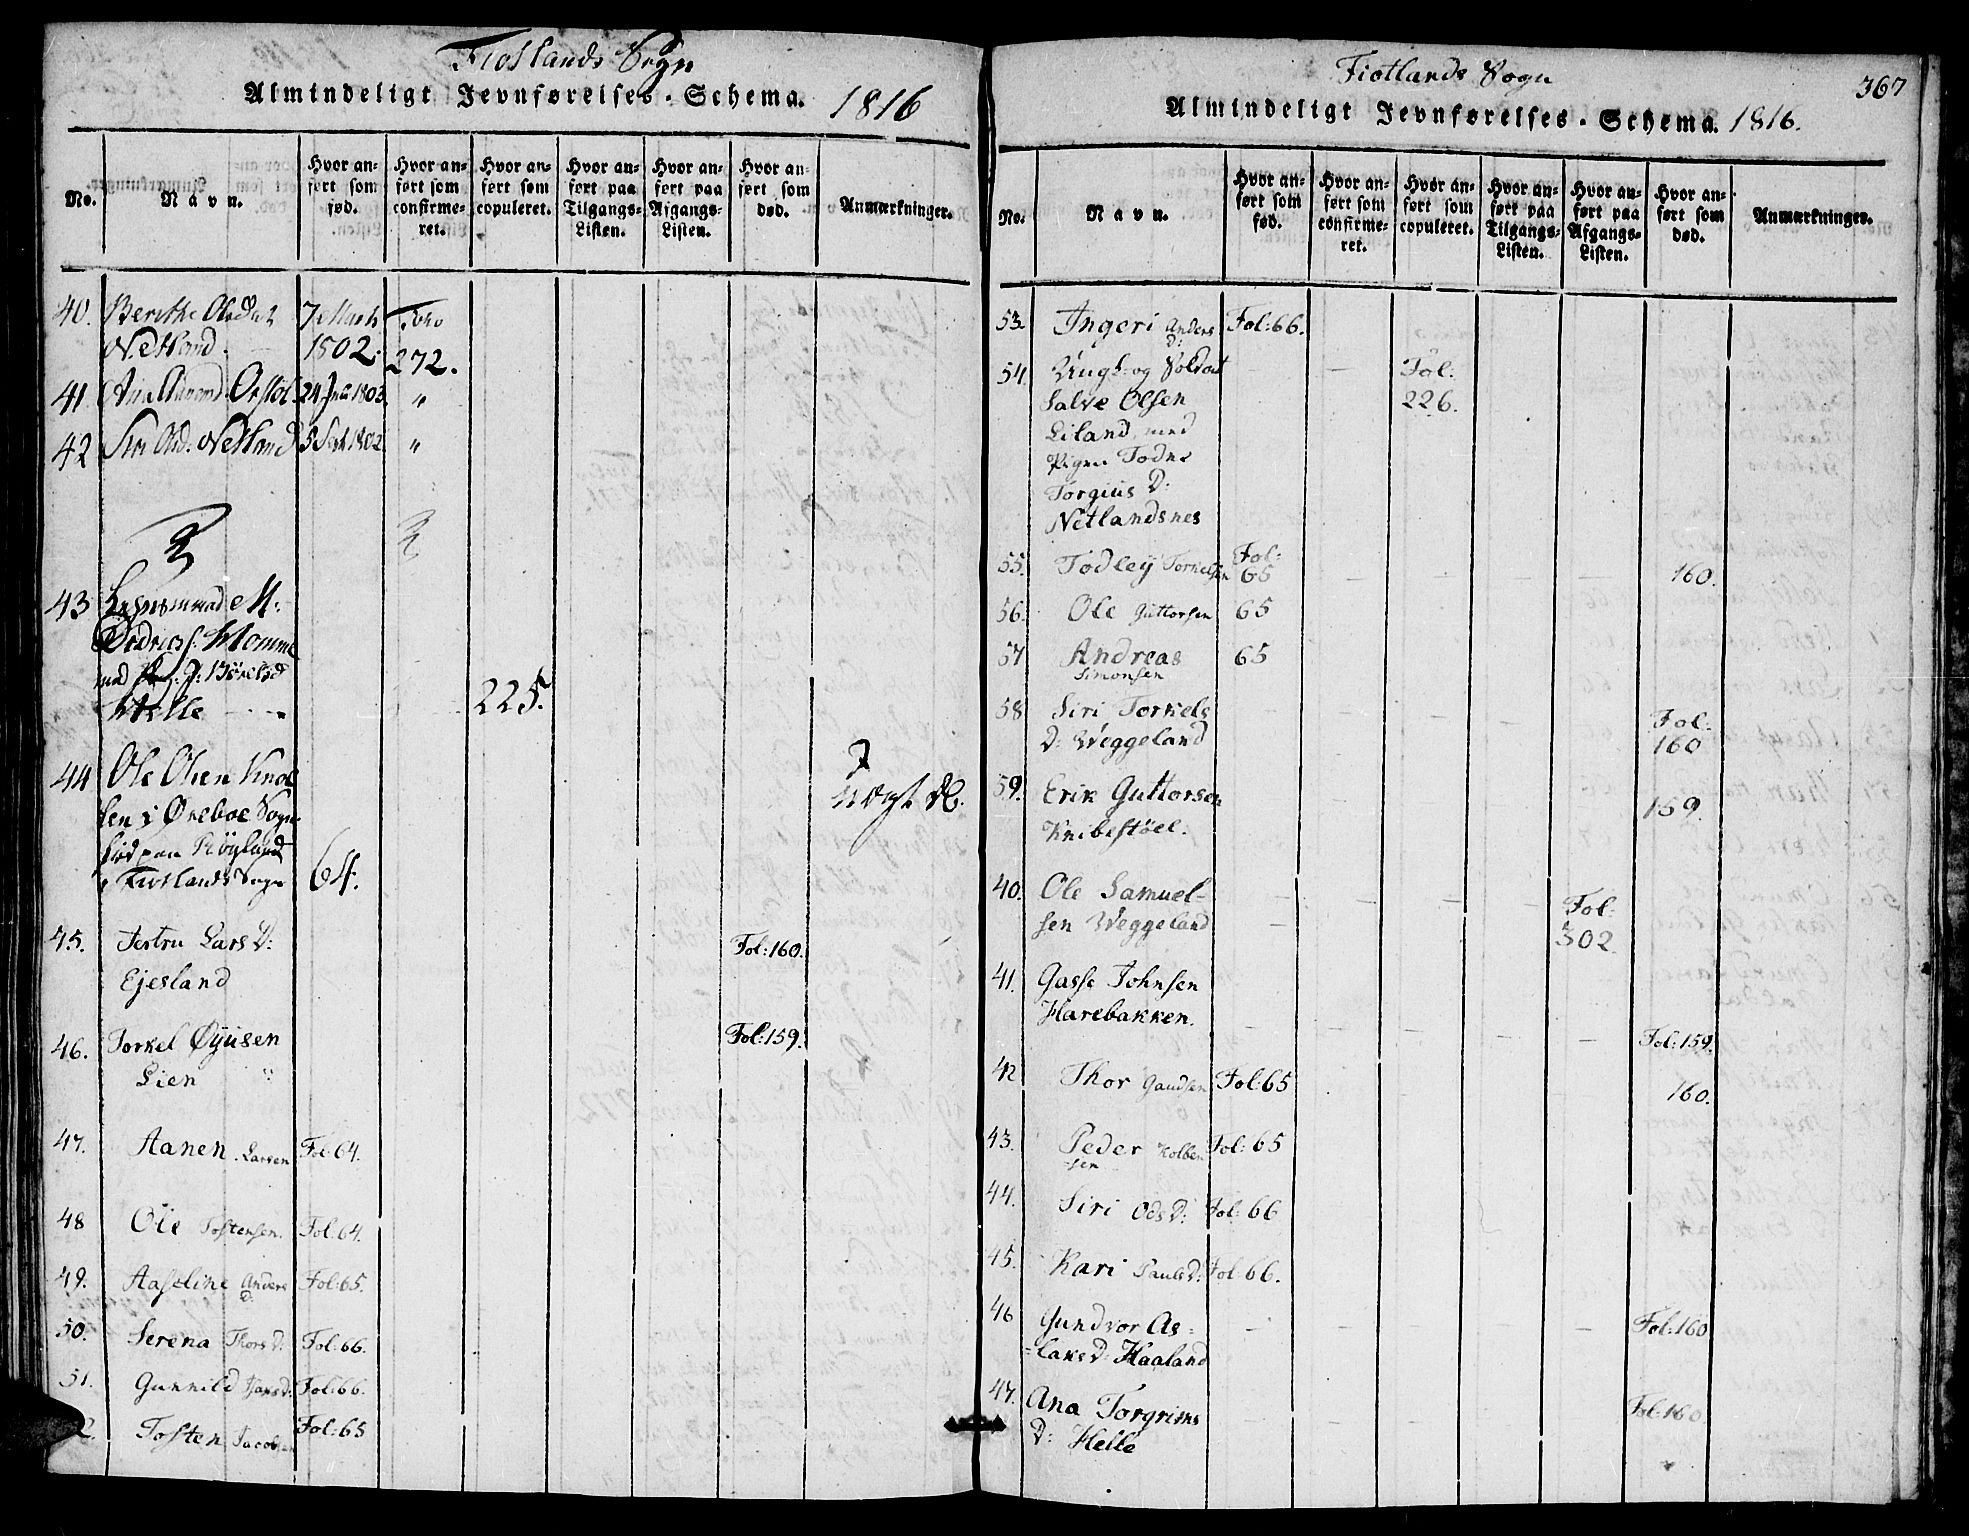 Fiotlands Sogn
Almindeligt Jevnførelses-Schema. 1816
No.
Navn.
Hvor anført som fød.
Hvor anført som confirmeret.
Hvor anført som copuleret.
Hvor anført paa Tilgangs-Listen.
Hvor anført paa Afgangs-Listen.
Hvor anført som død.
Anmærkninger.
40. Berithe Olsdat 7 Martz Folio
Netland 1802. 272.
41. Ana Aamond. 24 Juli 1803. "
42 Siri Olsd. Netland 5 Sept 1802. "
43
med
Helle 225.
44 Ole Olsen
sen i Øneboe Sogn
fød paa Röyland
i Fiotlands Sogn 64.
45. Jertru Lars D: Fol: 160.
Ejesland
46. Torkel Øÿusen Fol: 159.
Lien
47. Aanen Larsen Fol: 64.
48 Ole Tostensen. Fol: 64.
49. Aaseline Anders D: Fol: 65.
50. Serena Thors D: Fol: 66.
51. Gunnild Hans D: Fol: 66.
2. Tosten Jacobsen Fol: 65
Fiotlands Sogn
367
Almindeligt Jevnførelses-Schema. 1816.
No.
Navn.
Hvor anført som fød.
Hvor anført som confirmeret.
Hvor anført som copuleret.
Hvor anført paa Tilgangs-Listen.
Hvor anført paa Afgangs-Listen.
Hvor anført som død.
Anmærkninger.
53. Ingeri Anders D: Fol: 66.
54. Ungk: og Soldat Fol:
Salve Olsen 226.
Liland, med
Pigen Todne
Torgius D:
Netlandsnes
55. Todley Torkelsen Fol: 65 160.
56. Ole Guttorsen 65
57 Andreas 65
Simonsen
58 Siri Torkels Fol:
D: Weggeland 160
59. Erik Guttorsen 159.
Knibestöel.
40. Ole Samuel- Fol:
sen Weggeland 302
41. Gasse Johnsen
Harebakken. Fol: 159.
42 Thor Gaudsen Fol: 65 160.
43. Peder Kolben Fol: 65
-sen
44. Siri Ods D: Fol: 66
45. Kari Pauls D: Fol: 66.
46 Gundvor As= Fol: 160
=laks D: Haaland
47. Ana Torgrims Fol: 160
D: Helle